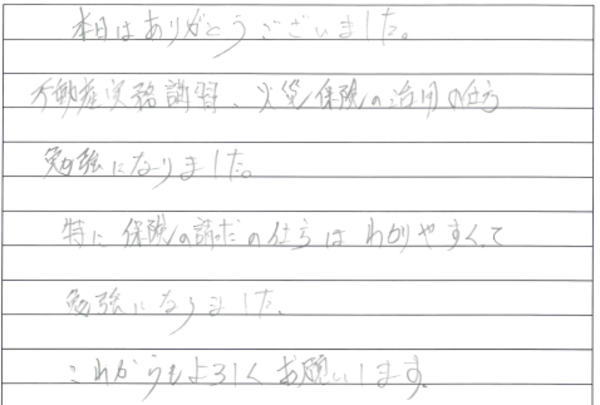 本日はありがとうございました。
不動産実務講習、火災保険の活用の仕方
勉強になりました。
特に保険の請求の仕方はわかりやすくて
勉強になりました。
これからもよろしくお願いします。